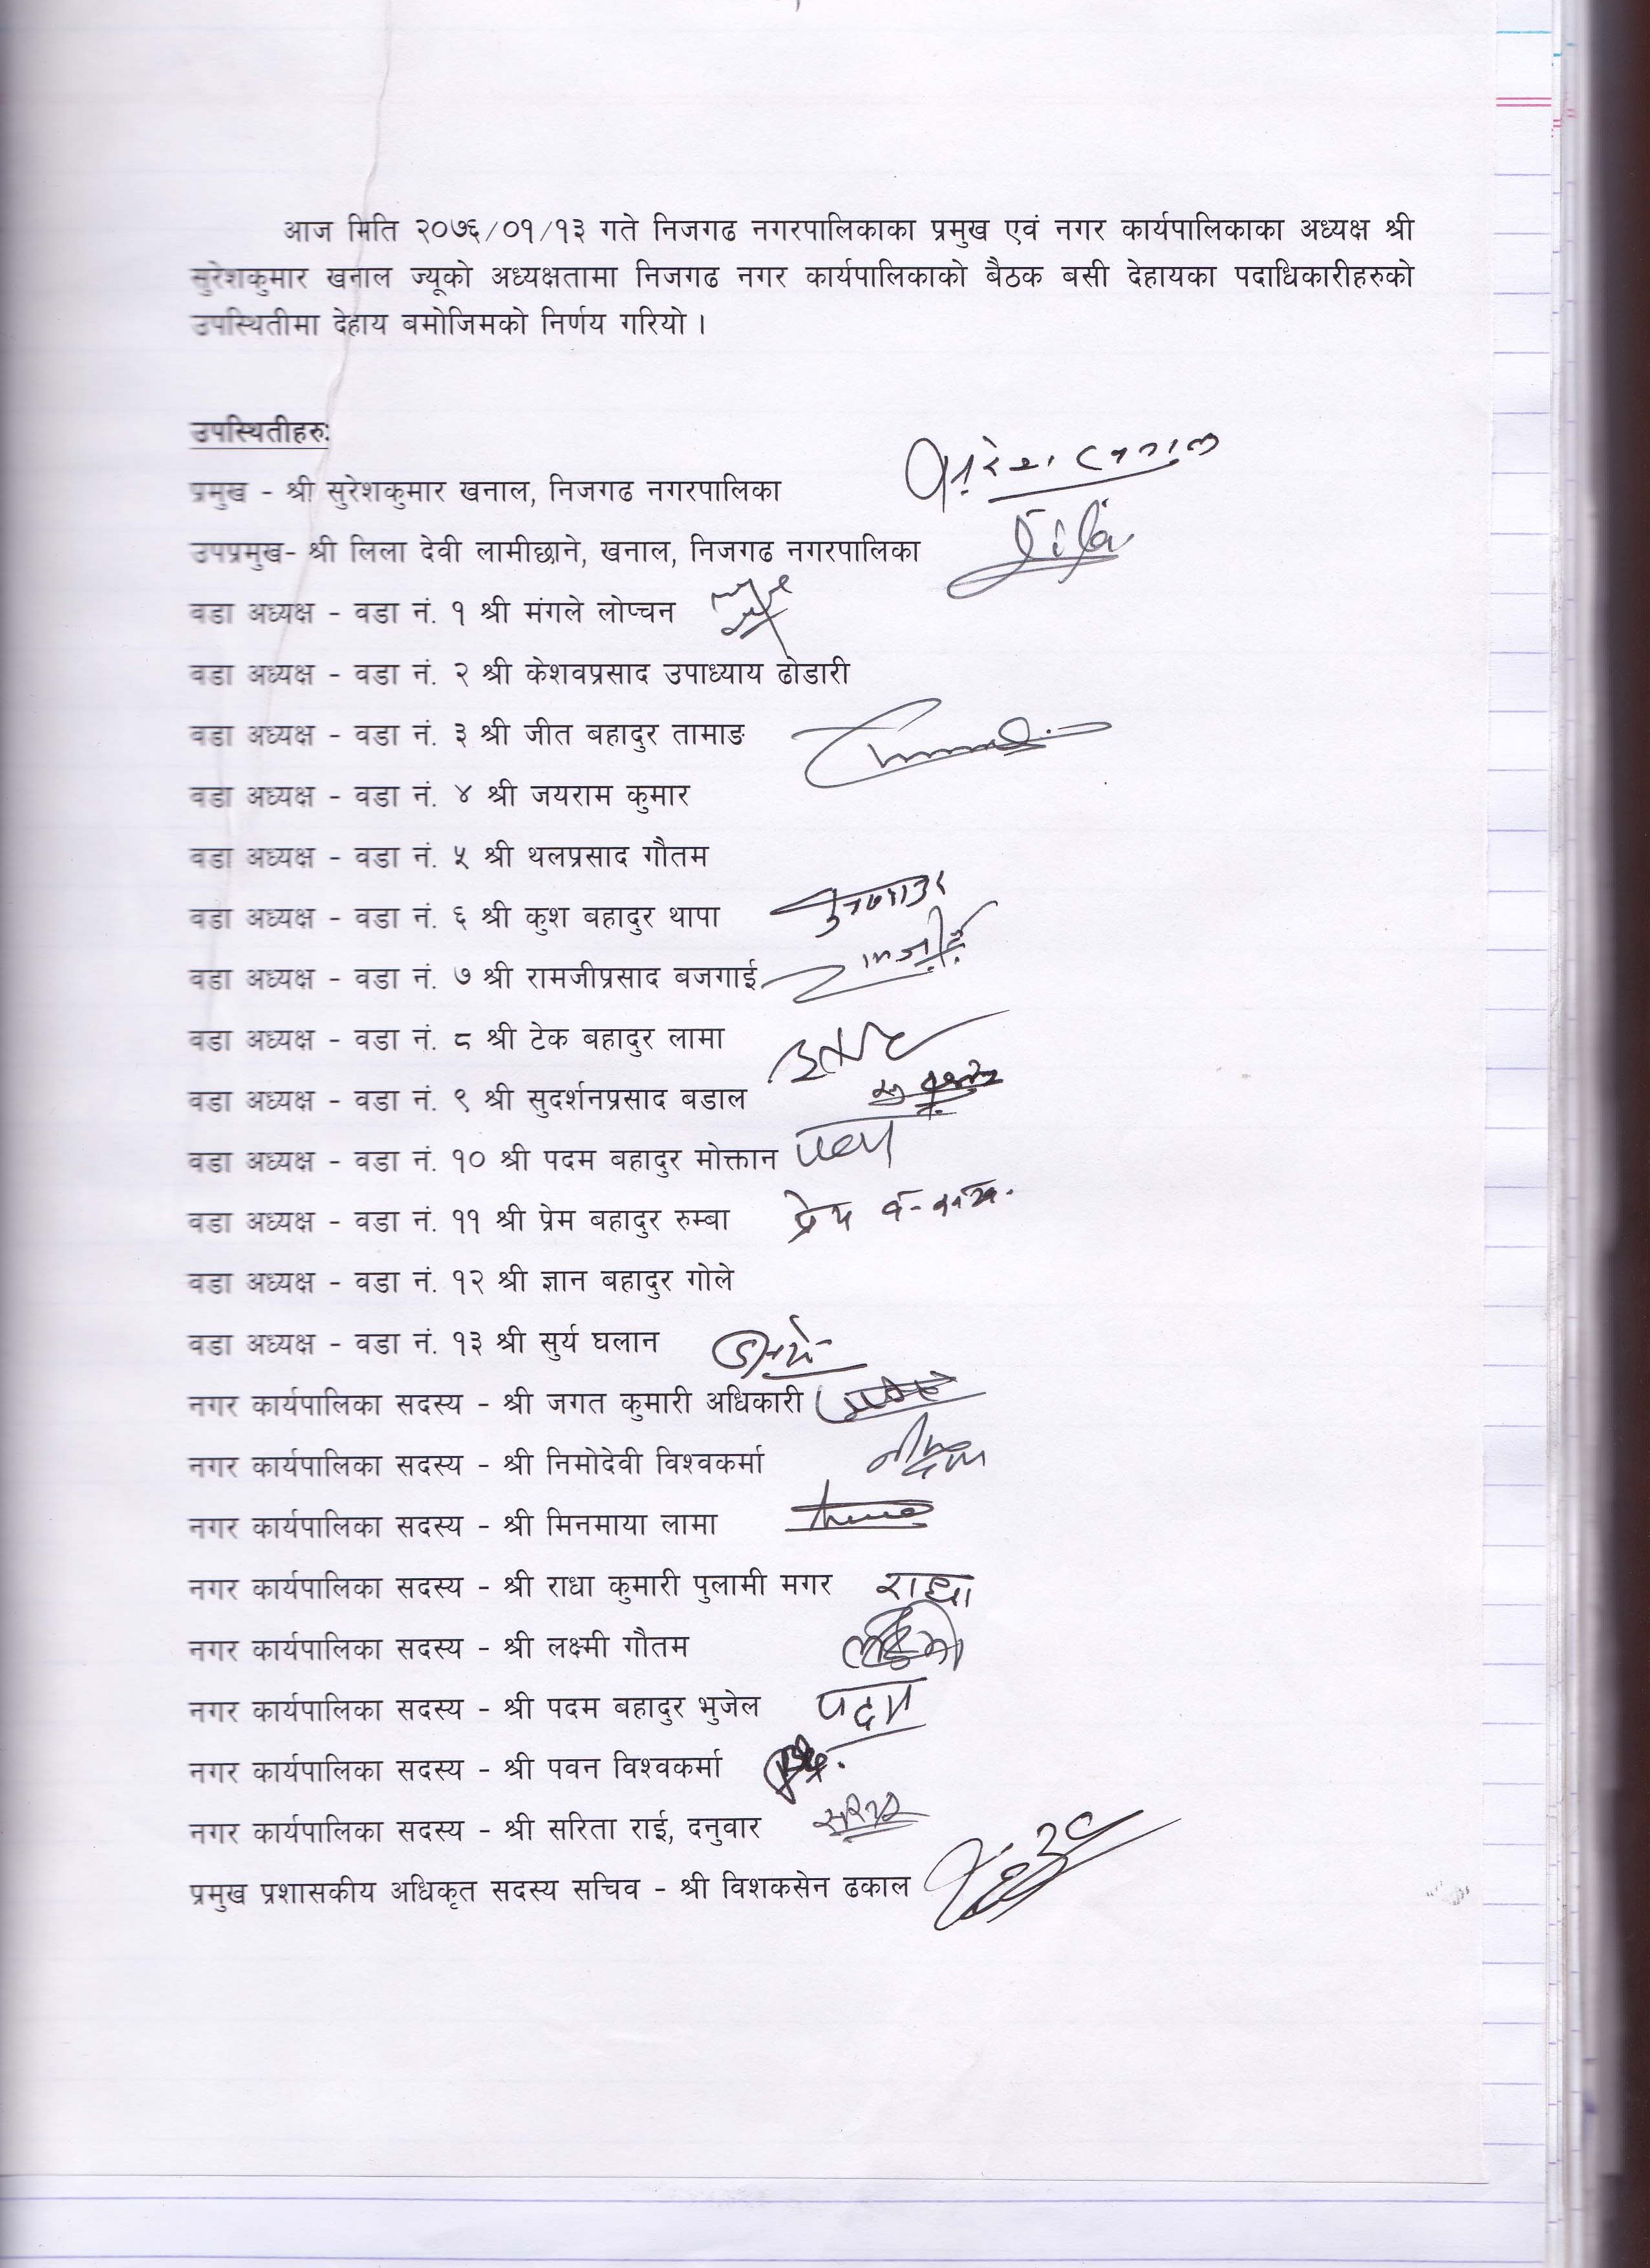 आज मिति २०७६/०१/१३ गते निजगढ नगरपालिकाका प्रमुख एवं नगर कार्यपालिकाका अध्यक्ष श्री
सुरेशकुमार खनाल ज्यूको अध्यक्षतामा निजगढ नगर कार्यपालिकाको बैठक बसी देहायका पदाधिकारीहरुको
उपस्थितीमा देहाय बमोजिमको निर्णय गरियो ।
उपस्थितीहरुः
प्रमुख - श्री सुरेशकुमार खनाल, निजगढ नगरपालिका
उपप्रमुख- श्री लिला देवी लामीछाने, खनाल, निजगढ नगरपालिका
वडा अध्यक्ष - वडा नं. १ श्री मंगले लोप्चन
वडा अध्यक्ष - वडा नं. २ श्री केशवप्रसाद उपाध्याय ढोडारी
वडा अध्यक्ष - वडा नं. ३ श्री जीत बहादुर तामाङ
वडा अध्यक्ष - वडा नं. ४ श्री जयराम कुमार
वडा अध्यक्ष - वडा नं. ५ श्री थलप्रसाद गौतम
वडा अध्यक्ष - वडा नं. ६ श्री कुश बहादुर थापा
वडा अध्यक्ष - वडा नं. ७ श्री रामजीप्रसाद बजगाई
वडा अध्यक्ष - वडा नं. ८ श्री टेक बहादुर लामा
वडा अध्यक्ष - वडा नं. ९ श्री सुदर्शनप्रसाद बडाल
वडा अध्यक्ष - वडा नं. १० श्री पदम बहादुर मोक्तान
वडा अध्यक्ष - वडा नं. ११ श्री प्रेम बहादुर रुम्बा
वडा अध्यक्ष - वडा नं. १२ श्री ज्ञान बहादुर गोले
वडा अध्यक्ष - वडा नं. १३ श्री सुर्य घलान
नगर कार्यपालिका सदस्य - श्री जगत कुमारी अधिकारी
नगर कार्यपालिका सदस्य - श्री निमोदेवी विश्वकर्मा
नगर कार्यपालिका सदस्य - श्री मिनमाया लामा
नगर कार्यपालिका सदस्य - श्री राधा कुमारी पुलामी मगर राधा
नगर कार्यपालिका सदस्य - श्री लक्ष्मी गौतम
नगर कार्यपालिका सदस्य - श्री पदम बहादुर भुजेल पदम
नगर कार्यपालिका सदस्य - श्री पवन विश्वकर्मा
नगर कार्यपालिका सदस्य - श्री सरिता राई, दनुवार
प्रमुख प्रशासकीय अधिकृत सदस्य सचिव - श्री विशकसेन ढकाल